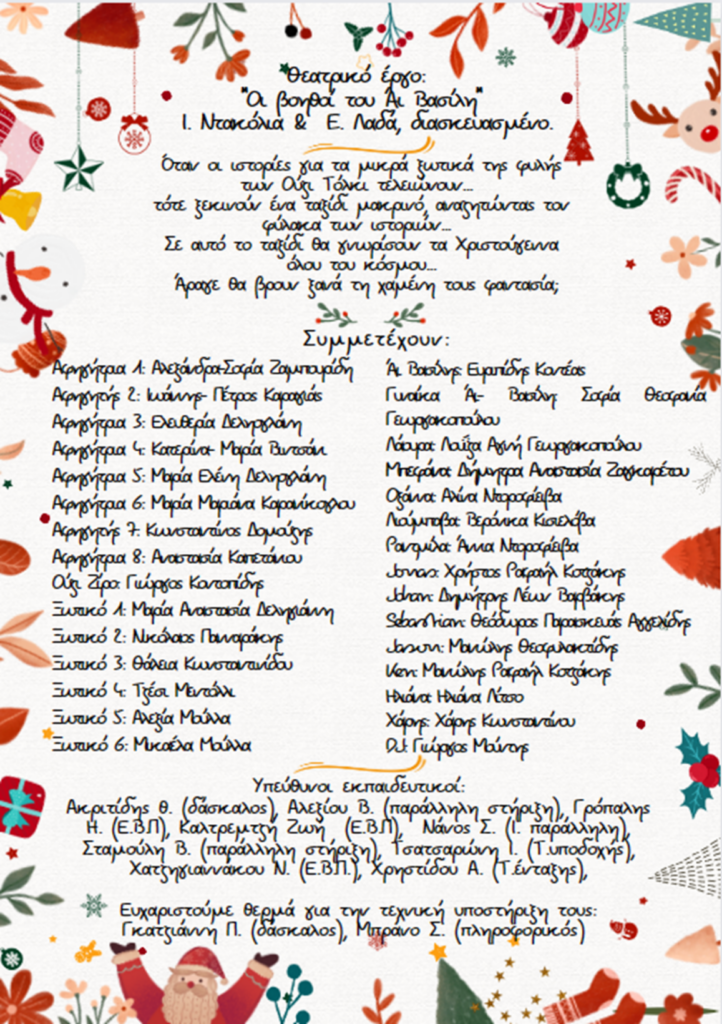 Θεατρικό έργο:
"Οι βοηθοί του Άι Βασίλη"
Ι. Ντακόλια & Ε. Λαδά, διασκευασμένο.
Όταν οι ιστορίες για τα μικρά ξωτικά της φυλής
των Ούζι Τόλκι τελειώνουν...
τότε ξεκινούν ένα ταξίδι μακρινό, αναζητώντας τον
φύλακα των ιστοριών...
Σε αυτό το ταξίδι θα γνωρίσουν τα Χριστούγεννα
όλου του κόσμου...
Άραγε θα βρουν ξανά τη χαμένη τους φαντασία;
Συμμετέχουν:
Αφηγήτρια 1: Αλεξάνδρα-Σοφία Ζαμπουρίδη
Αφηγητής 2: Ιωάννης- Πέτρος Καραγιάς
Αφηγήτρια 3: Ελευθερία Δεληογλάνη
Αφηγήτρια 4: Κατερίνα- Μαρία Βιντσάν
Αφηγήτρια 5: Μαρία Ελένη Δεληογλάνη
Αφηγήτρια 6: Μαρία Μαριάνα Καρανίκογλου
Αφηγητής 7: Κωνσταντίνος Δομούζης
Αφηγήτρια 8: Αναστασία Καπετάνιου
Ούζι Ζίρο: Γιώργος Κοντοπίδης
Ξωτικό 1: Μαρία Αναστασία Δεληγιάννη
Ξωτικό 2: Νικόλαος Πανναράκης
Ξωτικό 3: Θάλεια Κωνσταντινίδου
Ξωτικό 4: Τζέσι Μεντόλλι
Ξωτικό 5: Αλεξία Μούλλα
Ξωτικό 6: Μικαέλα Μούλλα
Άι Βασίλης: Ευριπίδης Κοντέας
Γυναίκα Άι- Βασίλη: Σοφία Θεοφανία
Γεωργακοπούλου
Λάουρα: Λουΐζα Αγνή Γεωργακοπούλου
Μπεφάνα: Δήμητρα Αναστασία Ζαγκαρέτου
Οξάννα: Αλίνα Ντοροφέιεβα
Λιούμποβα: Βερόνικα Κισελιόβα
Ραντμίλα: Άννα Ντοροφέιεβα
Jonas: Χρήστος Ραφαήλ Κοτζάκης
Johan: Δημήτρης Λέων Βαρβάκης
Sebasthian: Θεόδωρος Παρασκευάς Αγγελίδης
Jason: Μανώλης Θεοφυλακτίδης
Ken: Μανώλης Ραφαήλ Κοτζάκης
Ηλιάνα: Ηλιάνα Λίτσο
Χάρης: Χάρης Κωνσταντίνου
DJ: Γιώργος Μούντης
Υπεύθυνοι εκπαιδευτικοί:
Ακριτίδης Θ. (δάσκαλος), Αλεξίου Β. (παράλληλη στήριξη), Γρόπαλης
Η. (Ε.Β.Π), Καλτρεμτζή Ζωή (Ε.Β.Π), Νάνος Σ. (Ι. παράλληλη),
Σταμούλη Β. (παράλληλη στήριξη), Τσατσαρώνη Ι. (Τ.υποδοχής),
Χατζηγιαννάκου Ν. (Ε.Β.Π.), Χρηστίδου Α. (Τ.ένταξης),
Ευχαριστούμε θερμά για την τεχνική υποστήριξη τους:
Γκατζιάννη Π. (δάσκαλος), Μπράνο Σ. (πληροφορικός)